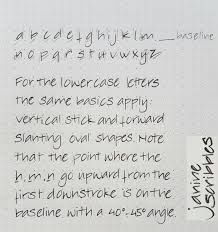 a b c d e f g h i j k l m __ baseline
n o p q r s t u v w x y z
For the lowercase letters
the same basics apply:
vertical stick and forward
slanting oval shapes. Note
that the point where the
h, m, n go upward from the
first downstroke is on the
baseline with a 40°-45° angle.
janine
scribbles